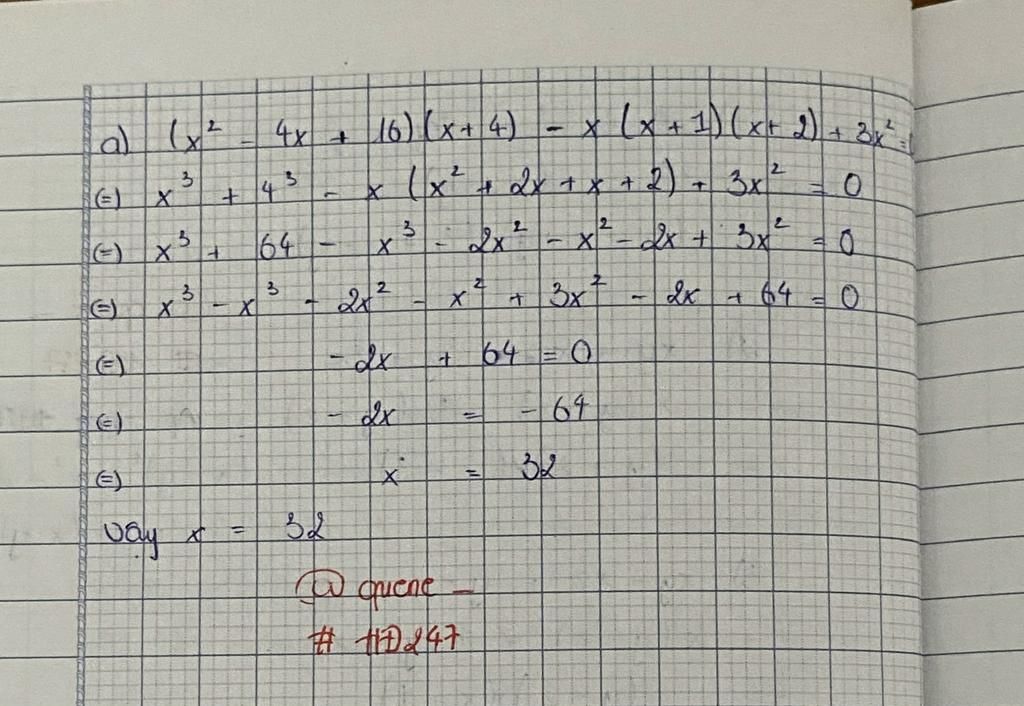 a) (x² - 4x + 16)(x + 4) - x (x + 1)(x + 2) + 3x² =
(=) x³ + 4³ - x (x² + 2x + x + 2) + 3x² = 0
(=) x³ + 64 - x³ - 2x² - x² - 2x + 3x² = 0
(=) x³ - x³ - 2x² - x² + 3x² - 2x + 64 = 0
(=) - 2x + 64 = 0
(=) - 2x = - 64
(=) x = 32
vậy x = 32
@ quene -
# HĐ247